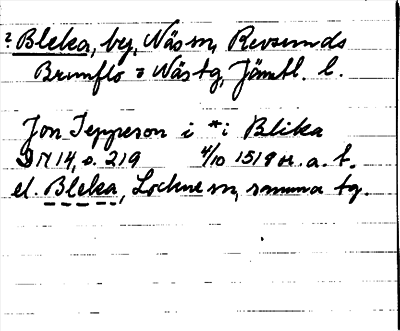 ? Bleka, by, Näs sn, Revsunds
Brunflo o Näs tg, Jämtl. l.
Jon Jeppeson i * i Blika
DN 14, s. 219 4/10 1519 or. a. t.
el. Bleka, Lockne sn, samma tg.